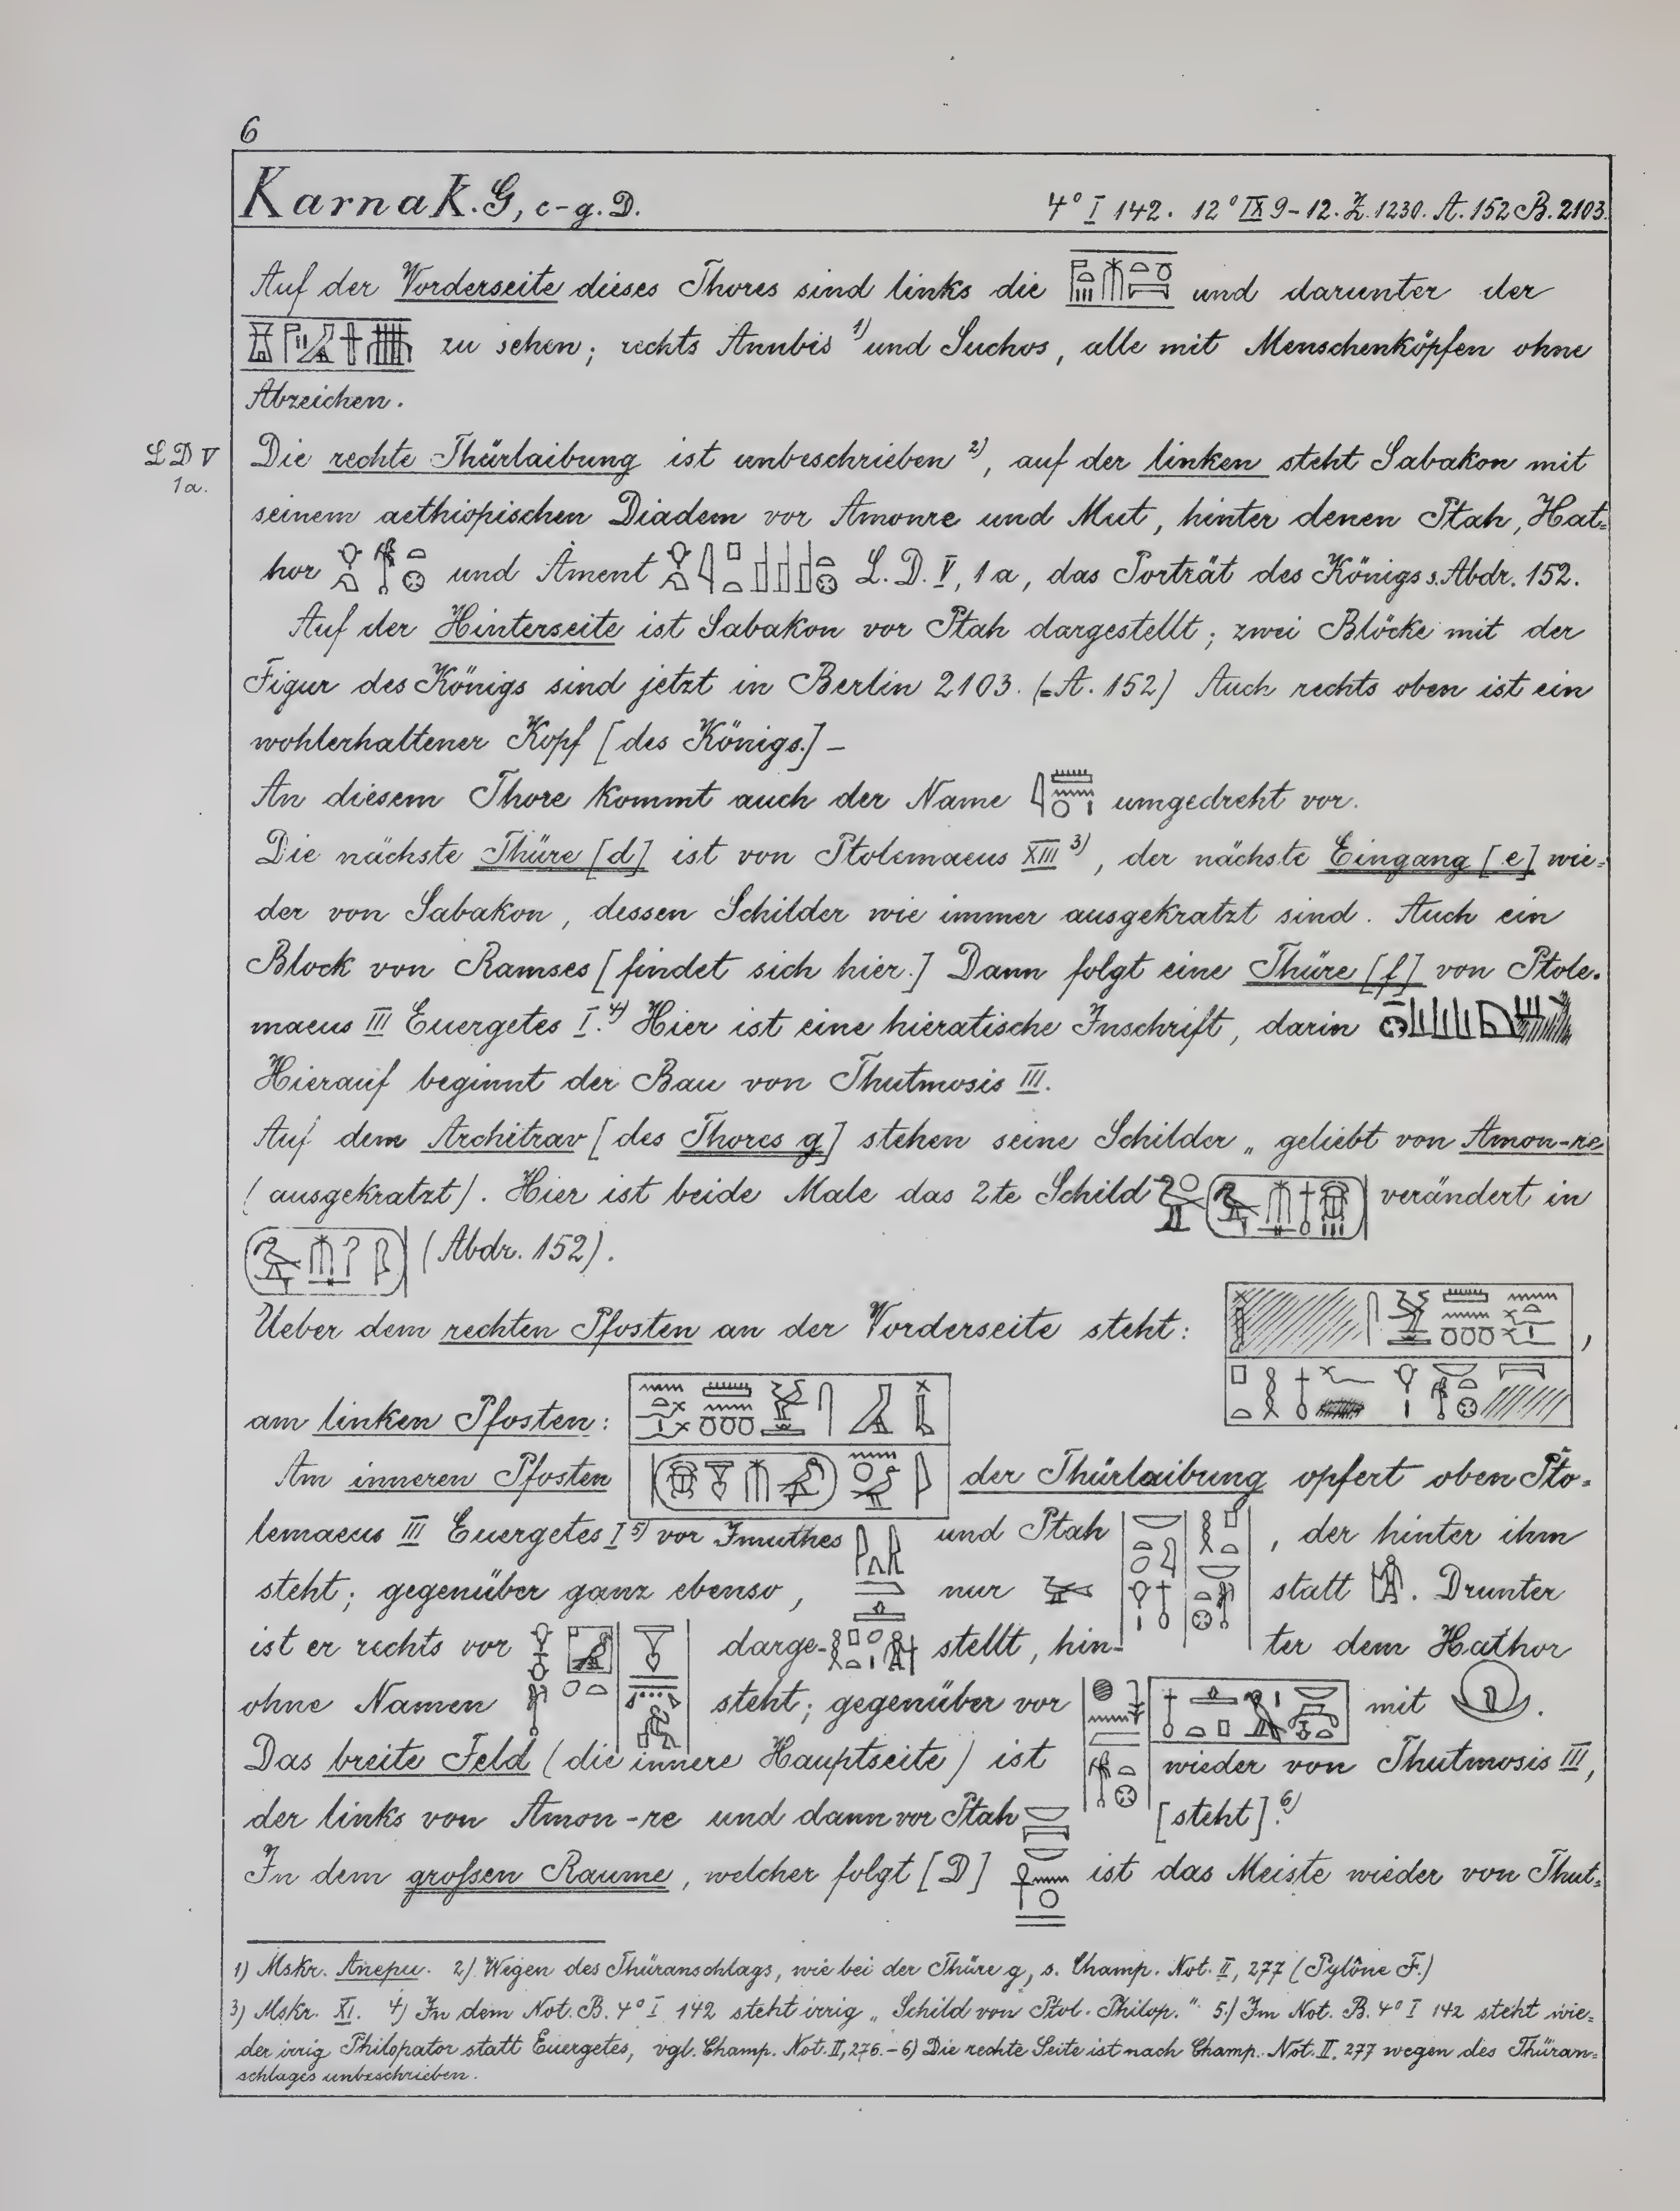 6
Karnak. G, c-g. D. 4° I 142. 12° IX 9-12. Z. 1230. A. 152 B. 2103.
Auf der Vorderseite dieses Thores sind links die und darunter der
zu sehen; rechts Anubis 1) und Suchos, alle mit Menschenköpfen ohne
Abzeichen.
L D V
1a.
Die rechte Thürlaibung ist unbeschrieben 2), auf der linken steht Sabakon mit
seinem aethiopischen Diadem vor Amonre und Mut, hinter denen Ptah, Hat=
hor und Ament L. D. V, 1a, das Porträt des Königs s. Abdr. 152.
Auf der Hinterseite ist Sabakon vor Ptah dargestellt; zwei Blöcke mit der
Figur des Königs sind jetzt in Berlin 2103. (=A. 152) Auch rechts oben ist ein
wohlerhaltener Kopf [des Königs.] –
An diesem Thore kommt auch der Name umgedreht vor.
Die nächste Thüre [d] ist von Ptolemaeus XIII 3), der nächste Eingang [e] wie=
der von Sabakon, dessen Schilder wie immer ausgekratzt sind. Auch ein
Block von Ramses [findet sich hier.] Dann folgt eine Thüre [f] von Ptole-
maeus III Euergetes I. 4) Hier ist eine hieratische Inschrift, darin
Hierauf beginnt der Bau von Thutmosis III.
Auf dem Architrav [des Thores g] stehen seine Schilder „ geliebt von Amon-re
(ausgekratzt). Hier ist beide Male das 2te Schild verändert in
(Abdr. 152).
Ueber dem rechten Pfosten an der Vorderseite steht: ,
am linken Pfosten:
Am inneren Pfosten der Thürlaibung opfert oben Pto-
lemaeus III Euergetes I 5) vor Imuthes und Ptah , der hinter ihm
steht; gegenüber ganz ebenso, nur statt . Drunter
ist er rechts vor darge- stellt, hin- ter dem Hathor
ohne Namen steht; gegenüber vor mit .
Das breite Feld (die innere Hauptseite) ist wieder von Thutmosis III,
der links von Amon-re und dann vor Ptah [steht]. 6)
In dem großen Raume, welcher folgt [D] ist das Meiste wieder von Thut=
1) Mskr. Anepu. 2) Wegen des Thüranschlags, wie bei der Thüre g, s. Champ. Not. II, 277 (Pylône F.)
3) Mskr. XI. 4) In dem Not. B. 4° I 142 steht irrig „ Schild von Ptol. Philop." 5.) Im Not. B. 4° I 142 steht wie=
der irrig Philopator statt Euergetes, vgl. Champ. Not. II, 276. – 6) Die rechte Seite ist nach Champ. Not. II, 277 wegen des Thüran=
schlages unbeschrieben.